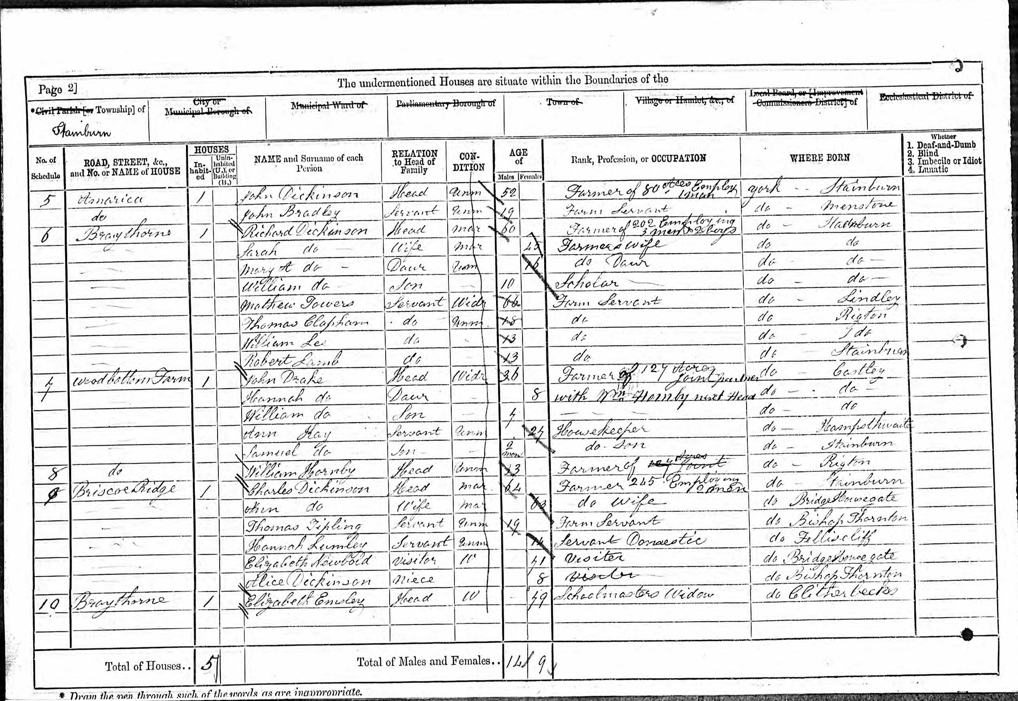 Page 2] The undermentioned Houses are situate within the Boundaries of the
* Civil Parish [or Township] of City or Municipal Borough of Municipal Ward of Parliamentary Borough of Town of Village or Hamlet, &c., of Local Board, or [Improvement Commissioners District] of Ecclesiastical District of
Stainburn
No. of Schedule ROAD, STREET, &c., and No. or NAME of HOUSE HOUSES Inhabited Uninhabited (U.), or Building (B.) NAME and Surname of each Person RELATION to Head of Family CONDITION AGE of Males Females Rank, Profession, or OCCUPATION WHERE BORN Whether 1. Deaf-and-Dumb 2. Blind 3. Imbecile or Idiot 4. Lunatic
5 America 1 John Dickinson Head Unm 52 Farmer of 80 Acres Employ 1 man york - Stainburn
do John Bradley Servant Unm 19 Farm Servant do - Menstone
6 Braythorne 1 Richard Dickinson Head Mar 60 Farmer of 202 Employing 3 men 2 boys do - Stainburn
Sarah do Wife Mar 45 Farmers wife do do
Mary A do - Daur Unm do Daur do - do -
William do Son - 10 Scholar - do - do -
Mathew Towers Servant Widr Farm Servant do - Lindley
Thomas Clapham do Unm 18 do do - Rigton
William Lee do 13 do do - do
Robert Lamb do 13 do do - Stainburn
7 Woodbottom Farm 1 John Drake Head Widr 36 Farmer of 127 Acres Joint partner do - Castley
Hannah do Daur 8 with Wm Hornby next Head do - do -
William do Son - 7 do - do
Ann Kay Servant Unm 27 Housekeeper do - Hampsthwaite
Samuel do Son - 2 mon do - Son do - Stainburn
8 do William Hornby Head Unm Farmer of Acres Joint do - Rigton
9 Briscoe Ridge 1 Charles Dickinson Head Mar 64 Farmer 245 Employing 2 men do - Stainburn
Ann do Wife Mar 63 do Wife do Bridge Howegate
Thomas Tipling Servant Unm 19 Farm Servant do Bishop Thornton
Hannah Lumley Servant Unm Servant Domestic do Felliscliff
Elizabeth Newbold Visitor W 41 Visiter do Bridge Howegate
Alice Dickinson Niece 8 Visiter do Bishop Thornton
10 Braythorne 1 Elizabeth Emsley Head W - 49 Schoolmasters Widow do Clitherbecks
Total of Houses.. 5 Total of Males and Females.. 14 9
* Draw the pen through such of the words as are inappropriate.